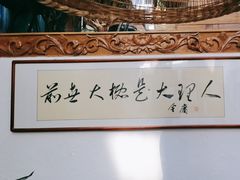 前世大概是大理人
金庸